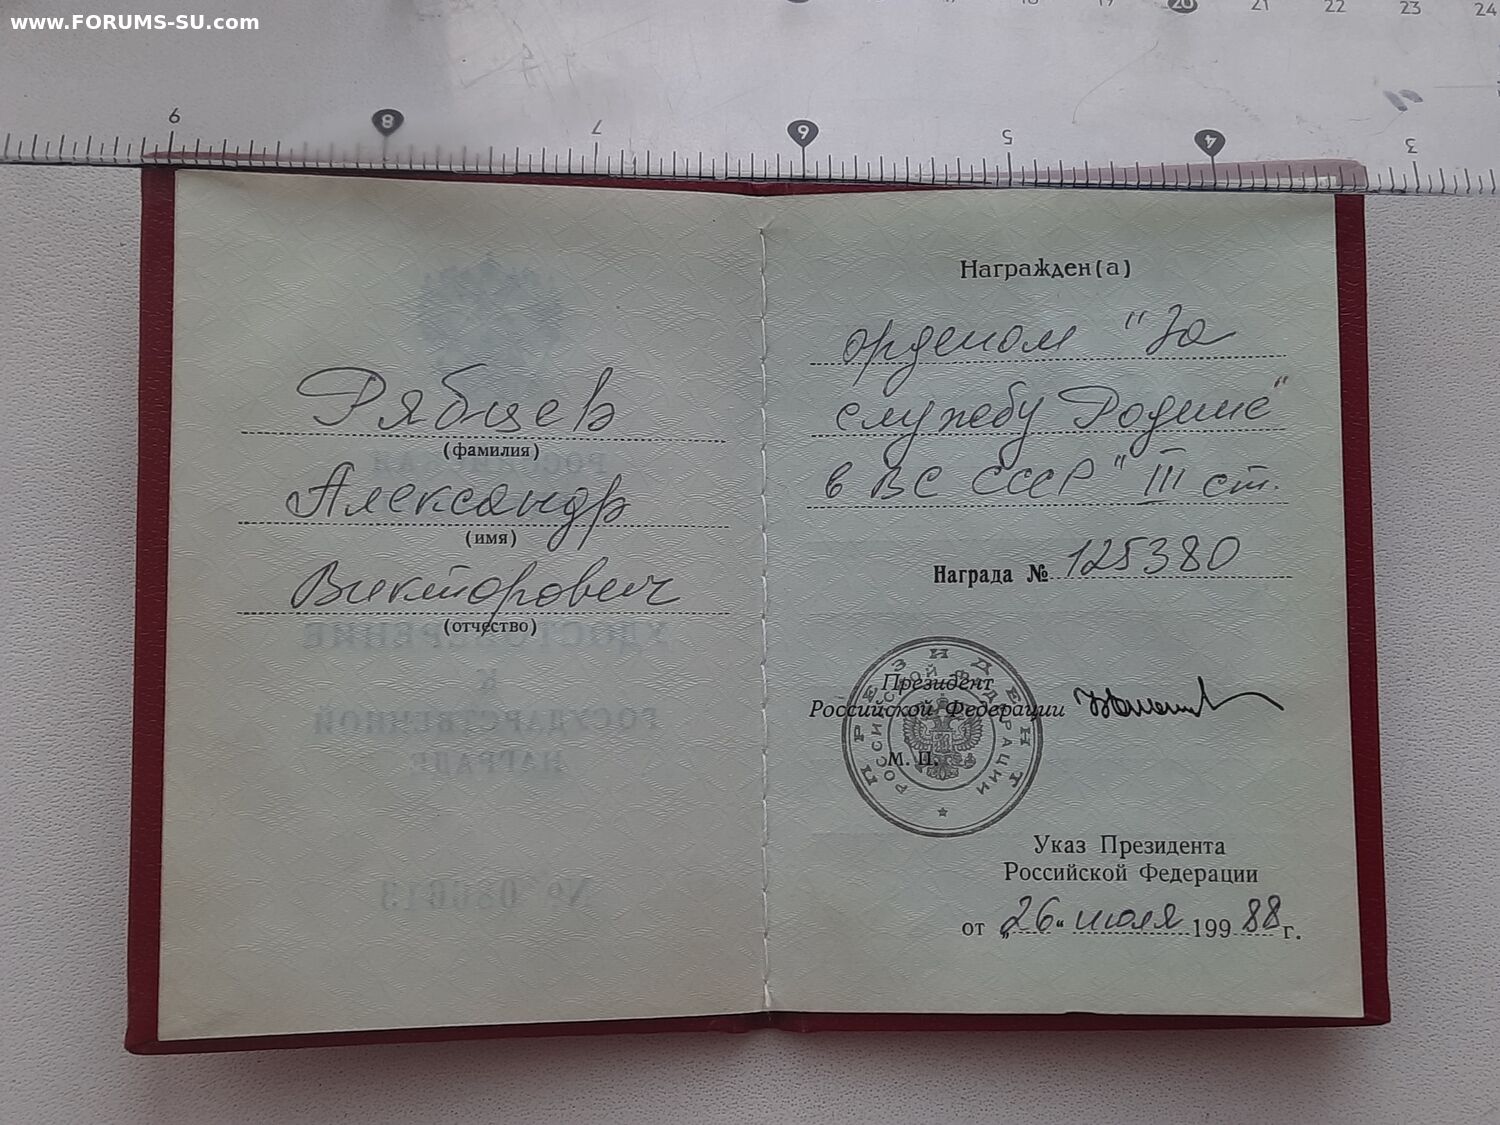 www.FORUMS-SU.com
20 21 22 23 24
9 8 7 6 5 4 3
Рябцев
(фамилия)
Александр
(имя)
Викторович
(отчество)
УДОСТОВЕРЕНИЕ
К
ГОСУДАРСТВЕННОЙ
НАГРАДЕ
Награжден(а)
орденом "За
службу Родине"
в ВС СССР" III ст.
Награда № 125380
Президент
Российской Федерации
М. П.
ПРЕЗИДЕНТ
РОССИЙСКОЙ ФЕДЕРАЦИИ
Указ Президента
Российской Федерации
от „26“ июля 199 88 г.